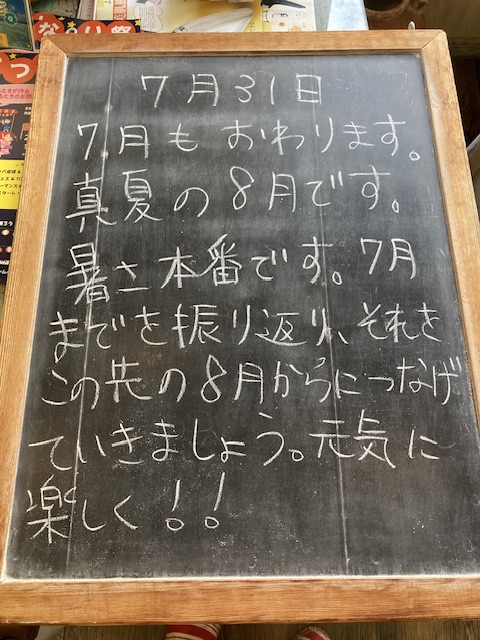 7月31日
7月もおわります。
真夏の8月です。
暑さ本番です。7月
までを振り返り、それを
この先の8月からにつなげ
ていきましょう。元気に
楽しく!!